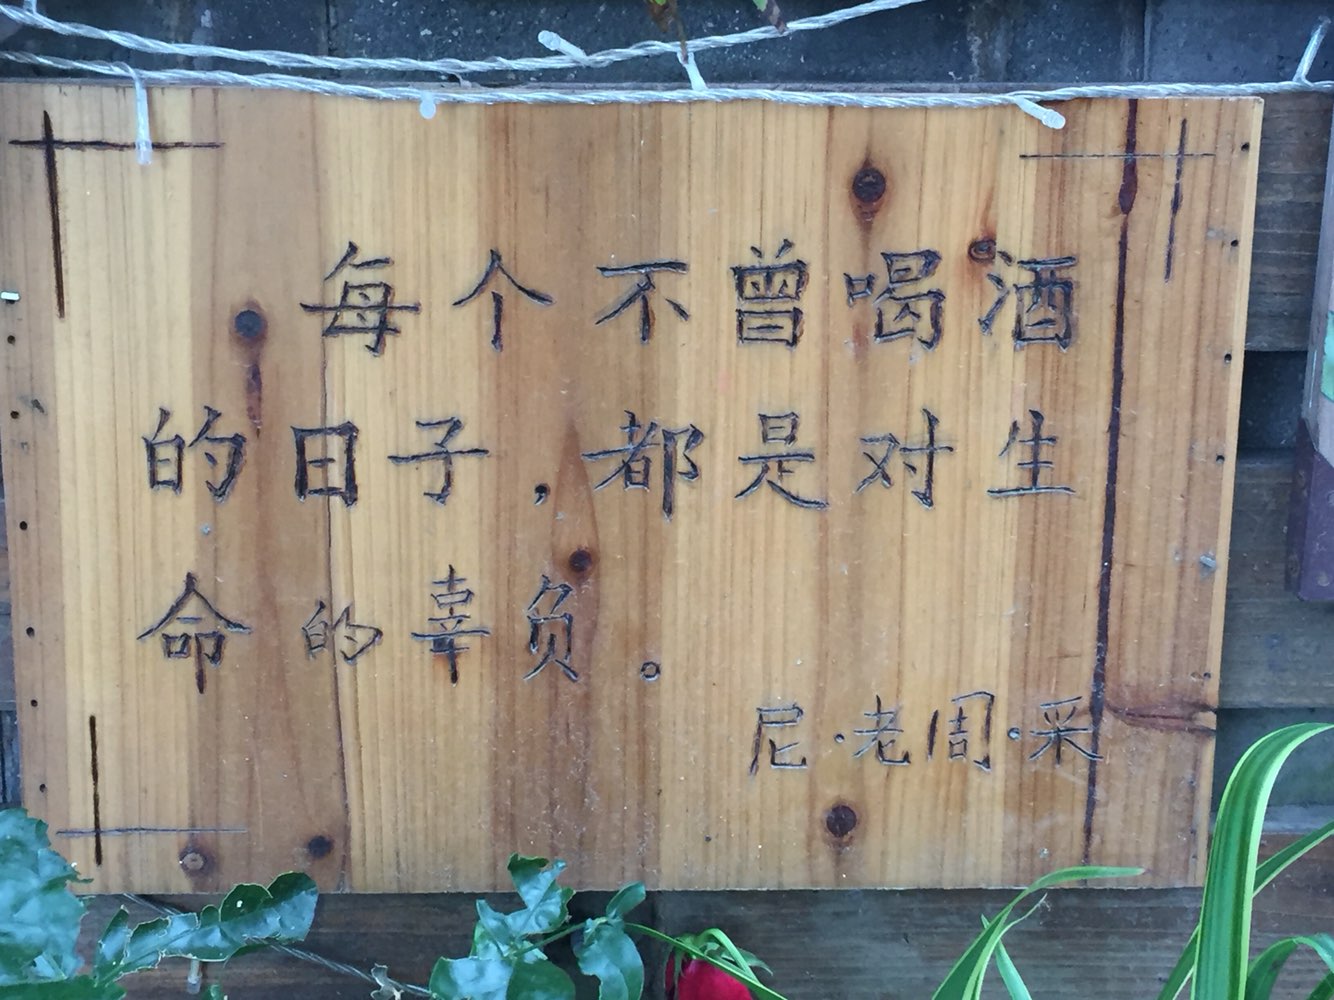 每个不曾喝酒
的日子，都是对生
命的辜负。
尼·老周·采